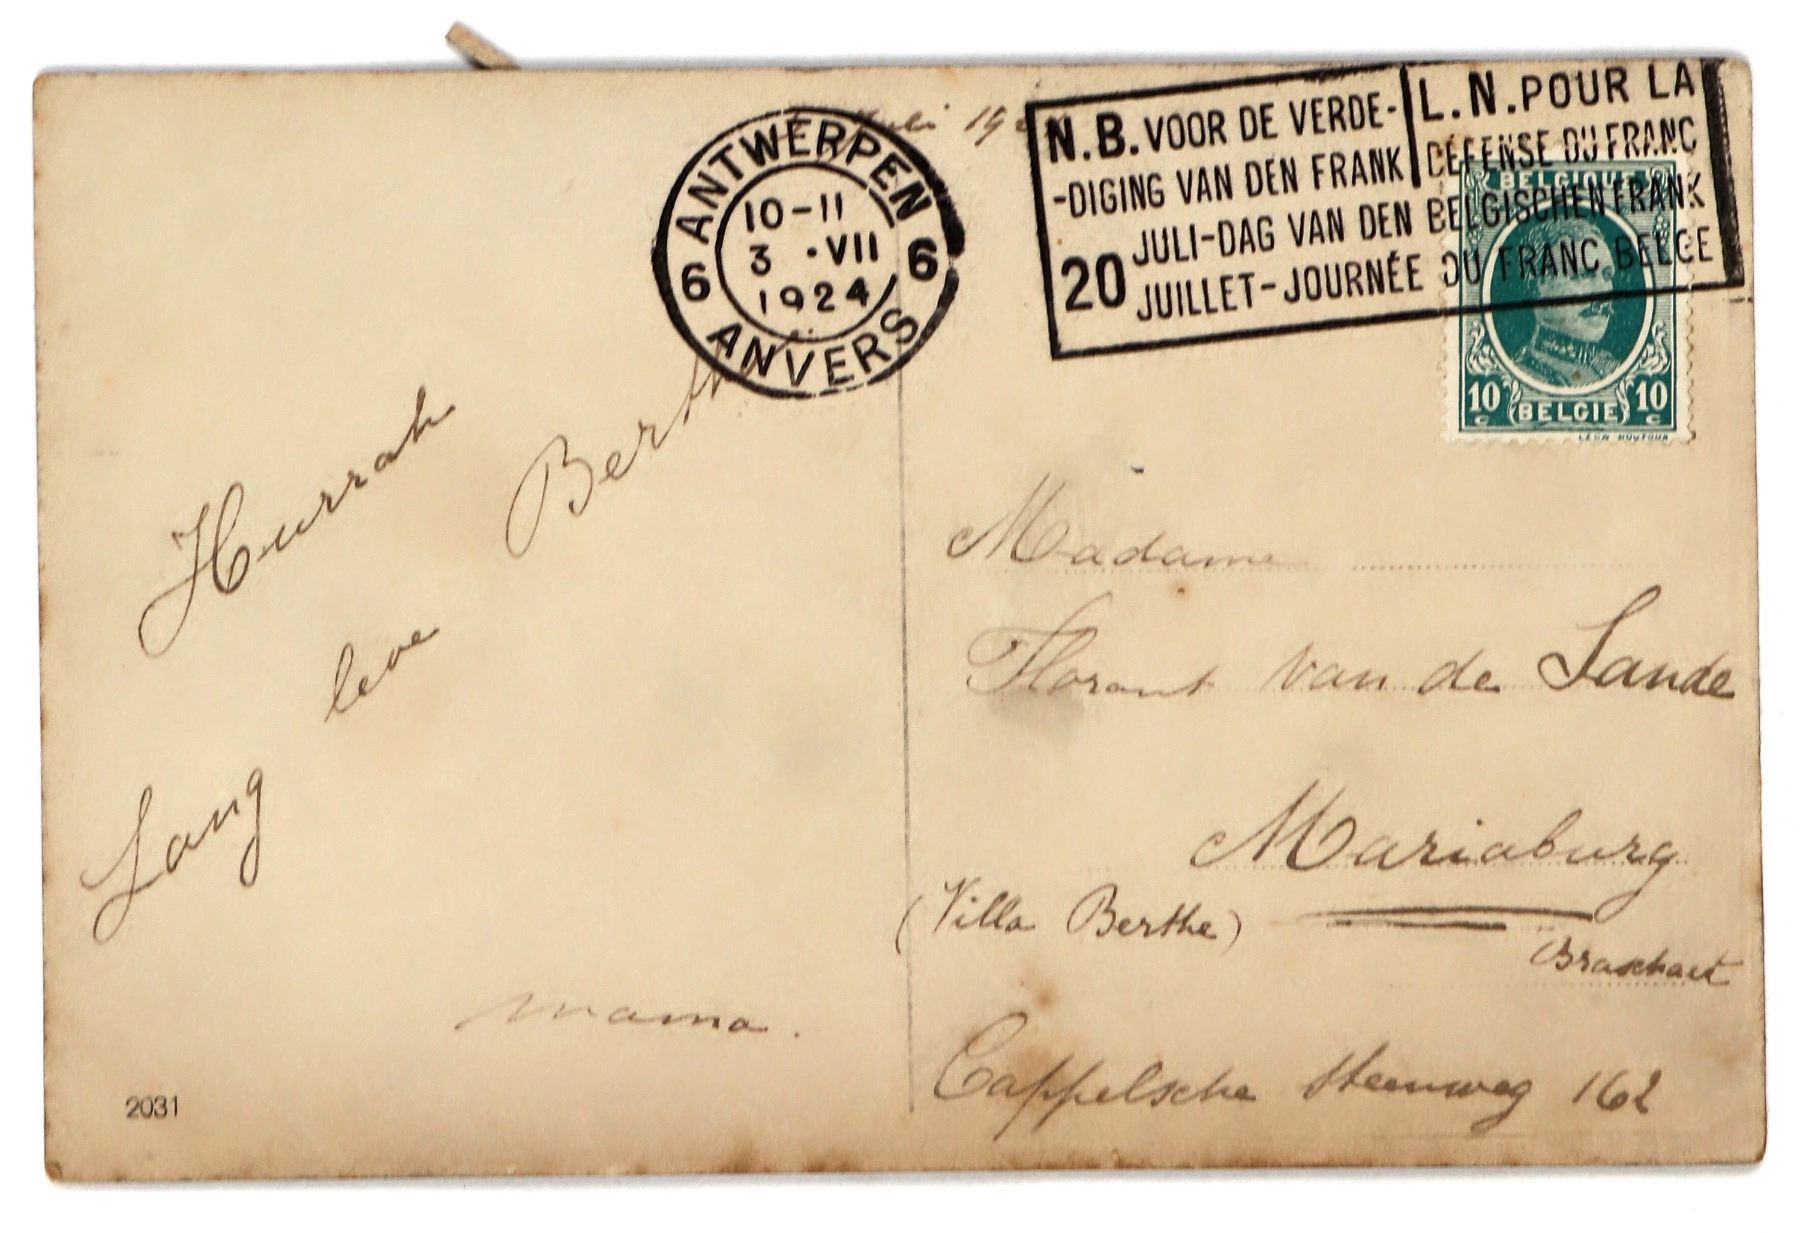 Juli 19
ANTWERPEN
6 6
10-11
3 ·VII
1924
ANVERS
N.B. VOOR DE VERDE-
-DIGING VAN DEN FRANK
L.N. POUR LA
DÉFENSE DU FRANC
20 JULI-DAG VAN DEN BELGISCHEN FRANK
JUILLET-JOURNÉE DU FRANC BELGE
BELGIQUE
10 c 10 c
BELGIE
Hurrah
Lang leve Berthe
mama.
2031
Madame
Florant van de Sande
Mariaburg
(Villa Berthe)
Braschaet
Cappelsche steenweg 162